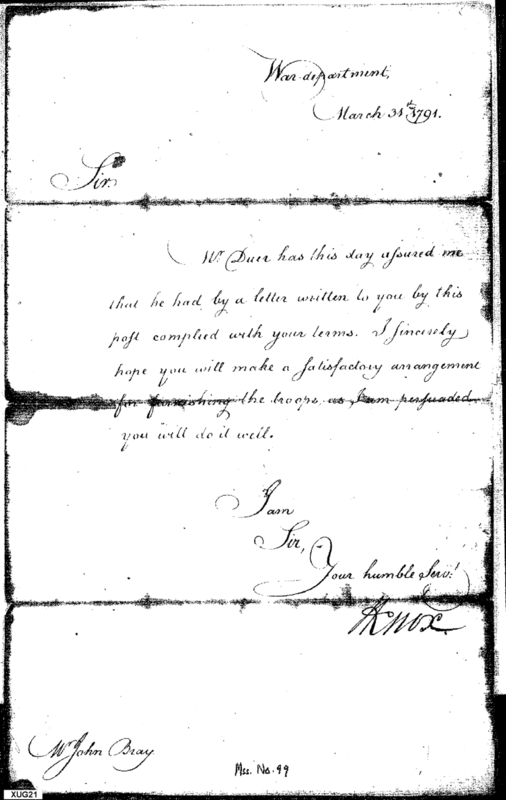 War department,
March 31st 1791.
Sir
Mr. Duer has this day assured me
that he had by a letter written to you by this
post complied with your terms. I sincerely
hope you will make a satisfactory arrangement
for furnishing the troops, as I am persuaded
you will do it well.
I am
Sir,
Your humble Servt.
HKnox
Mr John Bray
Mss. No. 99
XUG21